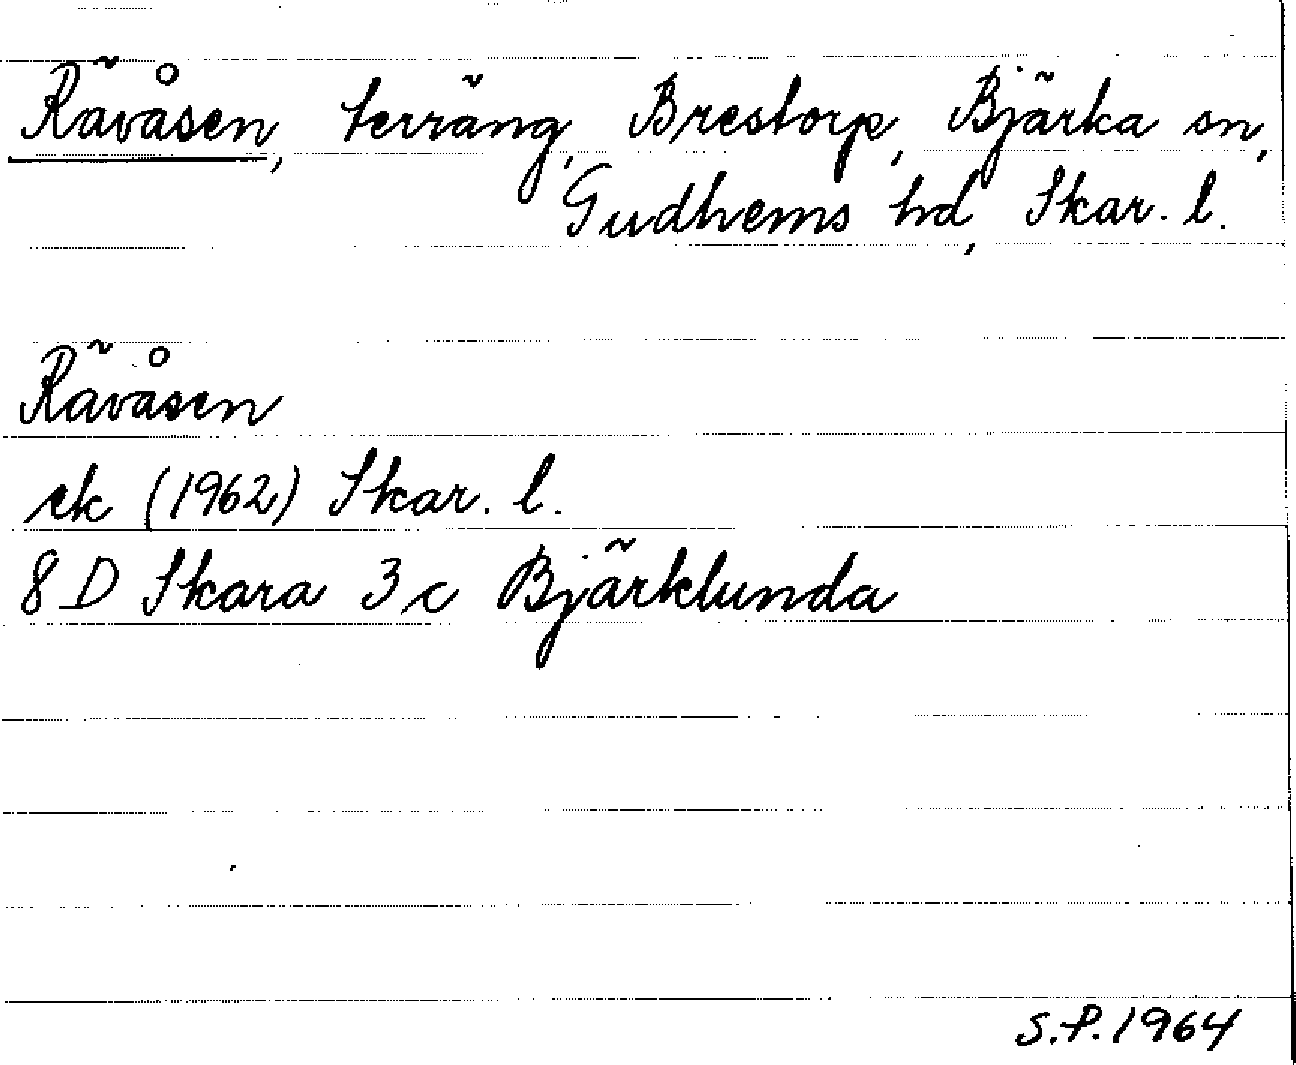 Rävåsen, terräng, Brestorp, Bjärka sn,
Gudhems hd, Skar. l.
Rävåsen
ek (1962) Skar. l.
8 D Skara 3 c Bjärklunda
S.P. 1964